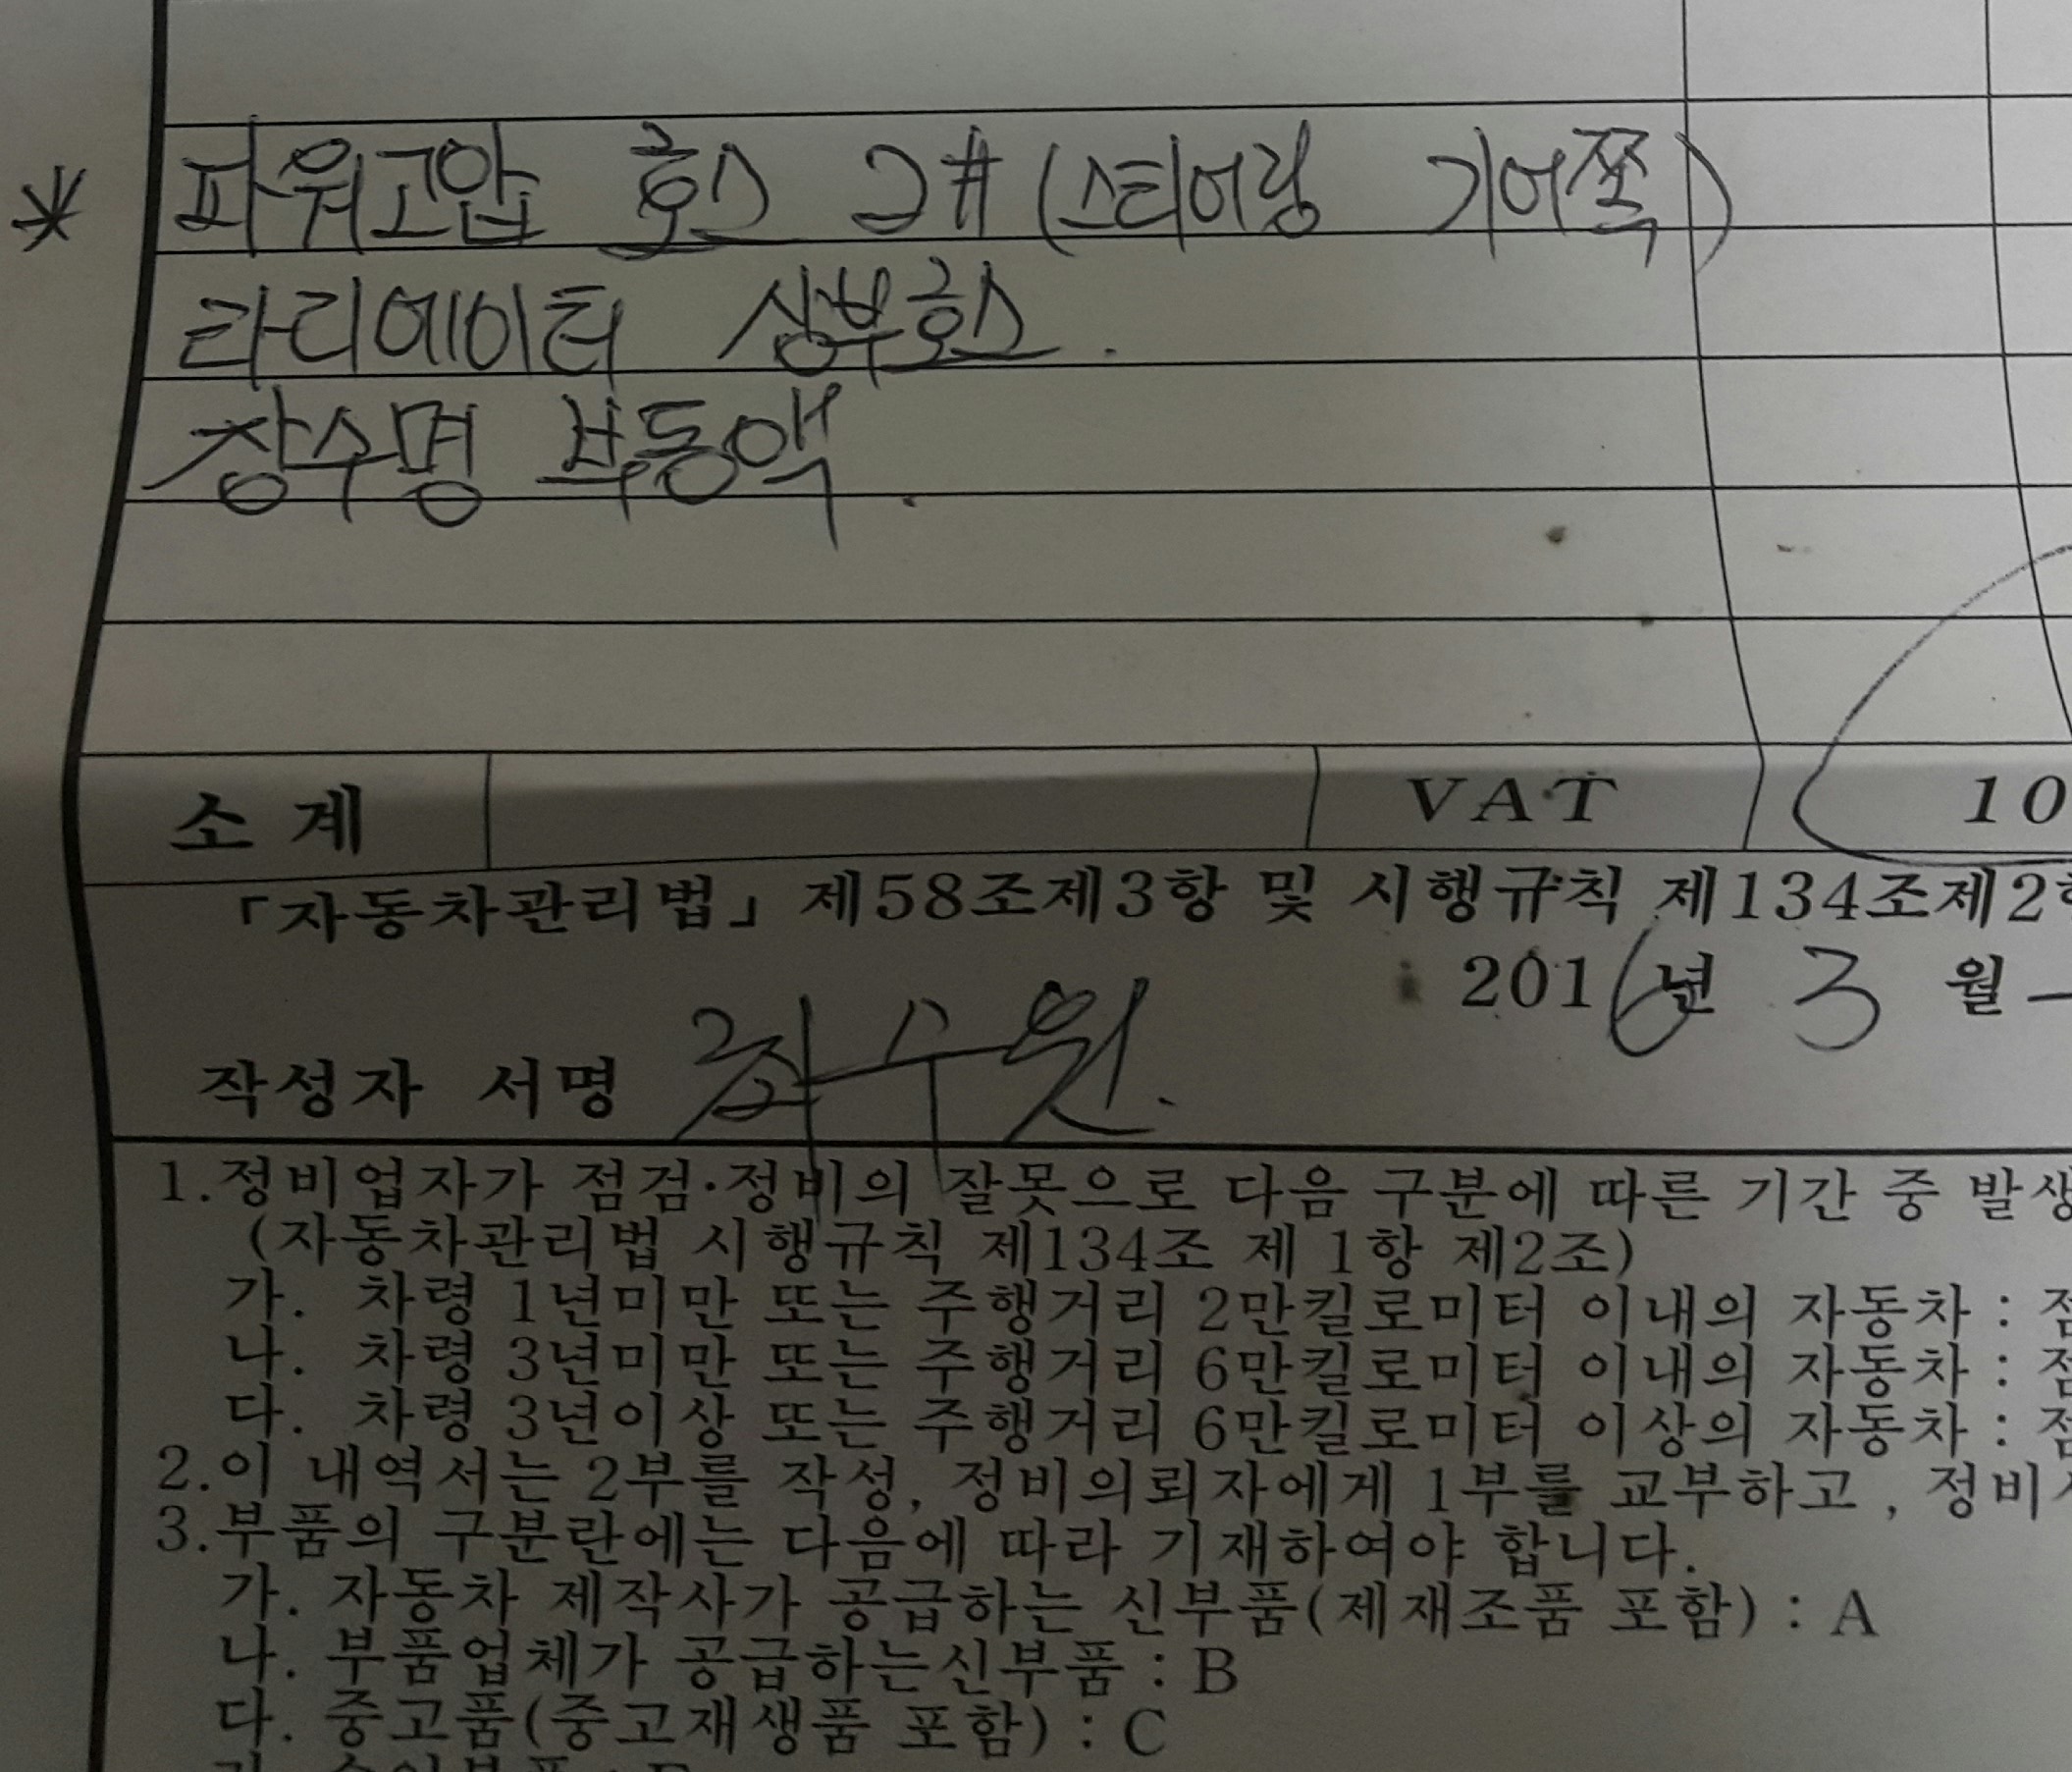 * 파워고압 호스 2# (스티어링 기어쪽)
라디에이터 상부호스.
장수명 부동액.
소 계 VAT 10
「자동차관리법」 제58조제3항 및 시행규칙 제134조제2항
2016년 3 월
작성자 서명 최수원.
1.정비업자가 점검·정비의 잘못으로 다음 구분에 따른 기간 중 발생
(자동차관리법 시행규칙 제134조 제1항 제2조)
가. 차령 1년미만 또는 주행거리 2만킬로미터 이내의 자동차 : 점
나. 차령 3년미만 또는 주행거리 6만킬로미터 이내의 자동차 : 점
다. 차령 3년이상 또는 주행거리 6만킬로미터 이상의 자동차 : 점
2.이 내역서는 2부를 작성, 정비의뢰자에게 1부를 교부하고, 정비
3.부품의 구분란에는 다음에 따라 기재하여야 합니다.
가. 자동차 제작사가 공급하는 신부품(제재조품 포함) : A
나. 부품업체가 공급하는신부품 : B
다. 중고품(중고재생품 포함) : C